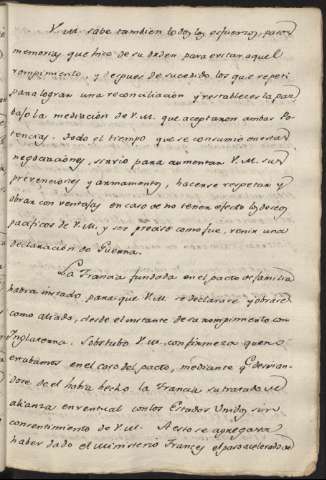 V.M. sabe tambien todos los esfuerzos, pasos y
memorias que hice de su orden para evitar aquel
rompimiento, y despues de sucedido, los que repeti
para lograr una reconciliacion y restableces la paz
bajo la mediacion de V.M. que aceptaron ambas Po-
tencias. Todo el tiempo que se consumió en estas
negociaciones, sirvió para aumentar V.M. sus
prevenciones y armamentos, hacerse respetar y
obrar con ventajas en caso de no tener efecto los deseos
pacificos de V.M. y ser preciso como fue, venir à una
declaracion de Guerra.
La Francia fundada en el pacto de familia
habia instado para que V.M. se declarase y obrase
como aliado, desde el instante de su rompimiento con
Inglaterra. Sobstubo V.M. con firmeza que no
estabamos en el caso del pacto, mediante q.e desvian-
dose de el habia hecho la Francia su tratado de
alianza eventual con los Estados Unidos sin
consentimiento de V.M. A esto se agregava
haber dado el Ministerio Frances el paso acelerado de